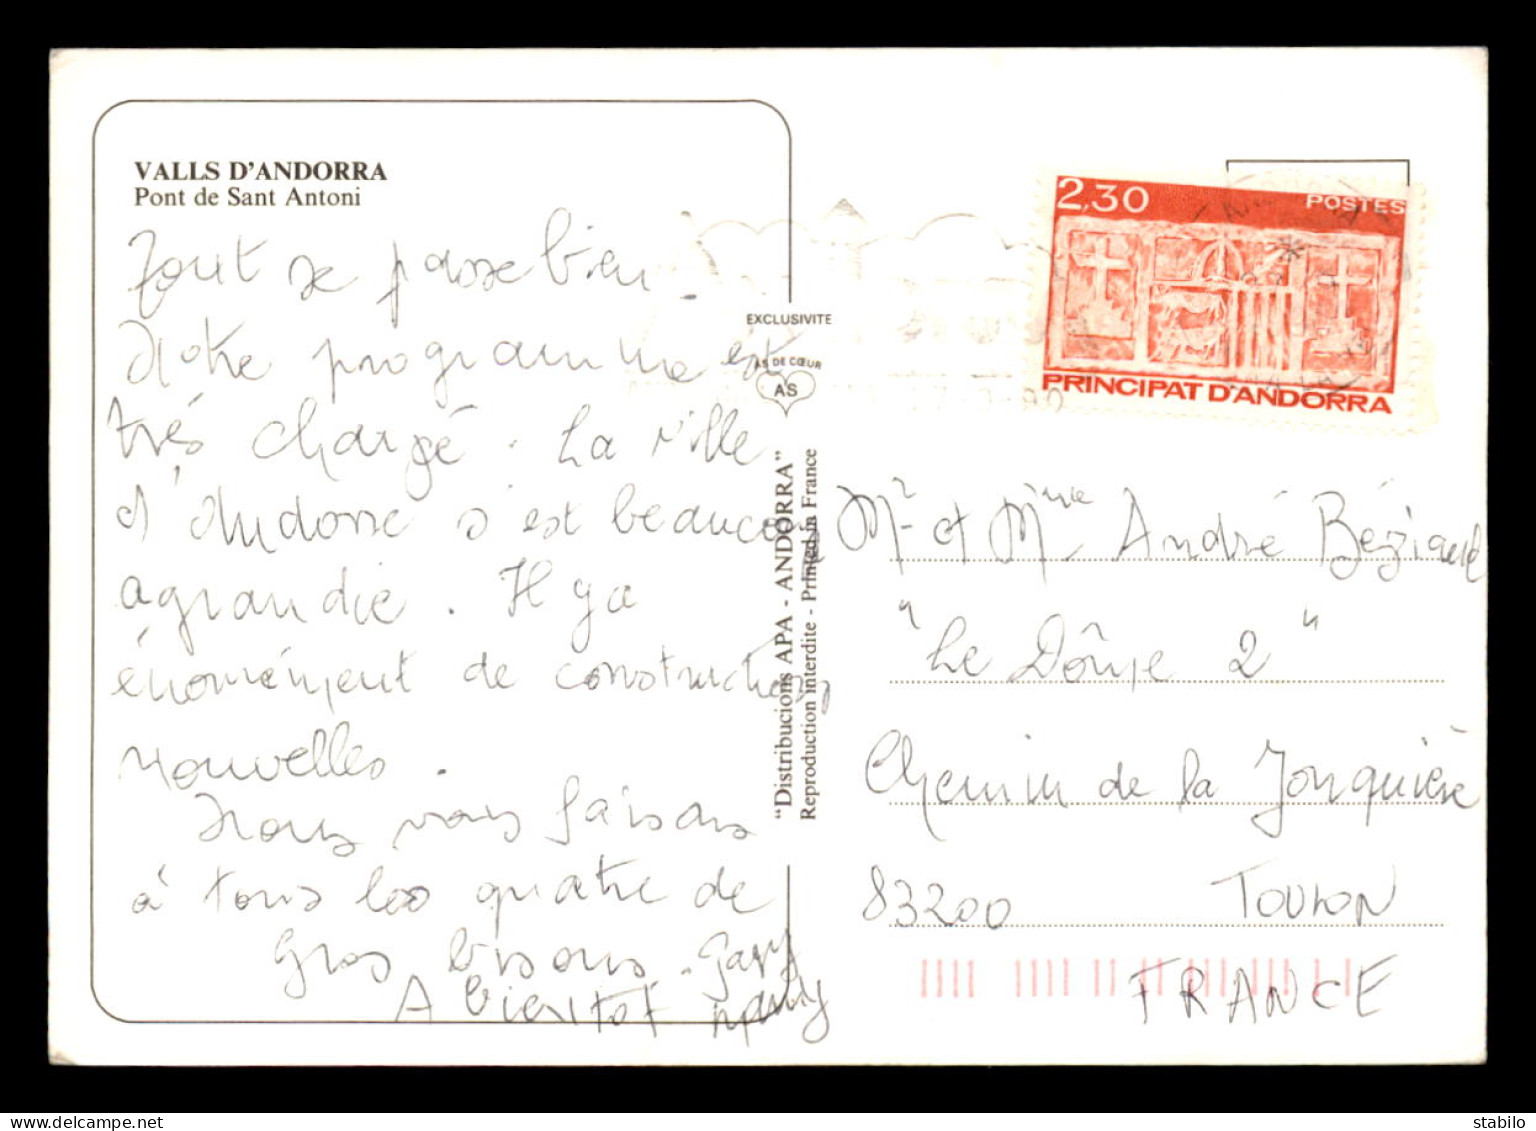 VALLS D'ANDORRA
Pont de Sant Antoni
Tout se passe bien.
Notre programme est
très chargé. La ville
d'Andorre s'est beaucoup
agrandie. Il y a
énormément de constructions
nouvelles.
Nous vous faisons
à tous les quatre de
gros bisous.
A bientôt
EXCLUSIVITE
AS DE CŒUR
AS
"Distribucions APA - ANDORRA"
Reproduction interdite - Printed in France
2,30 POSTES
PRINCIPAT D'ANDORRA
Mr et Mme André Béziaud
"Le Dôme 2"
Chemin de la Jonquière
83200 TOULON
FRANCE
stabilo